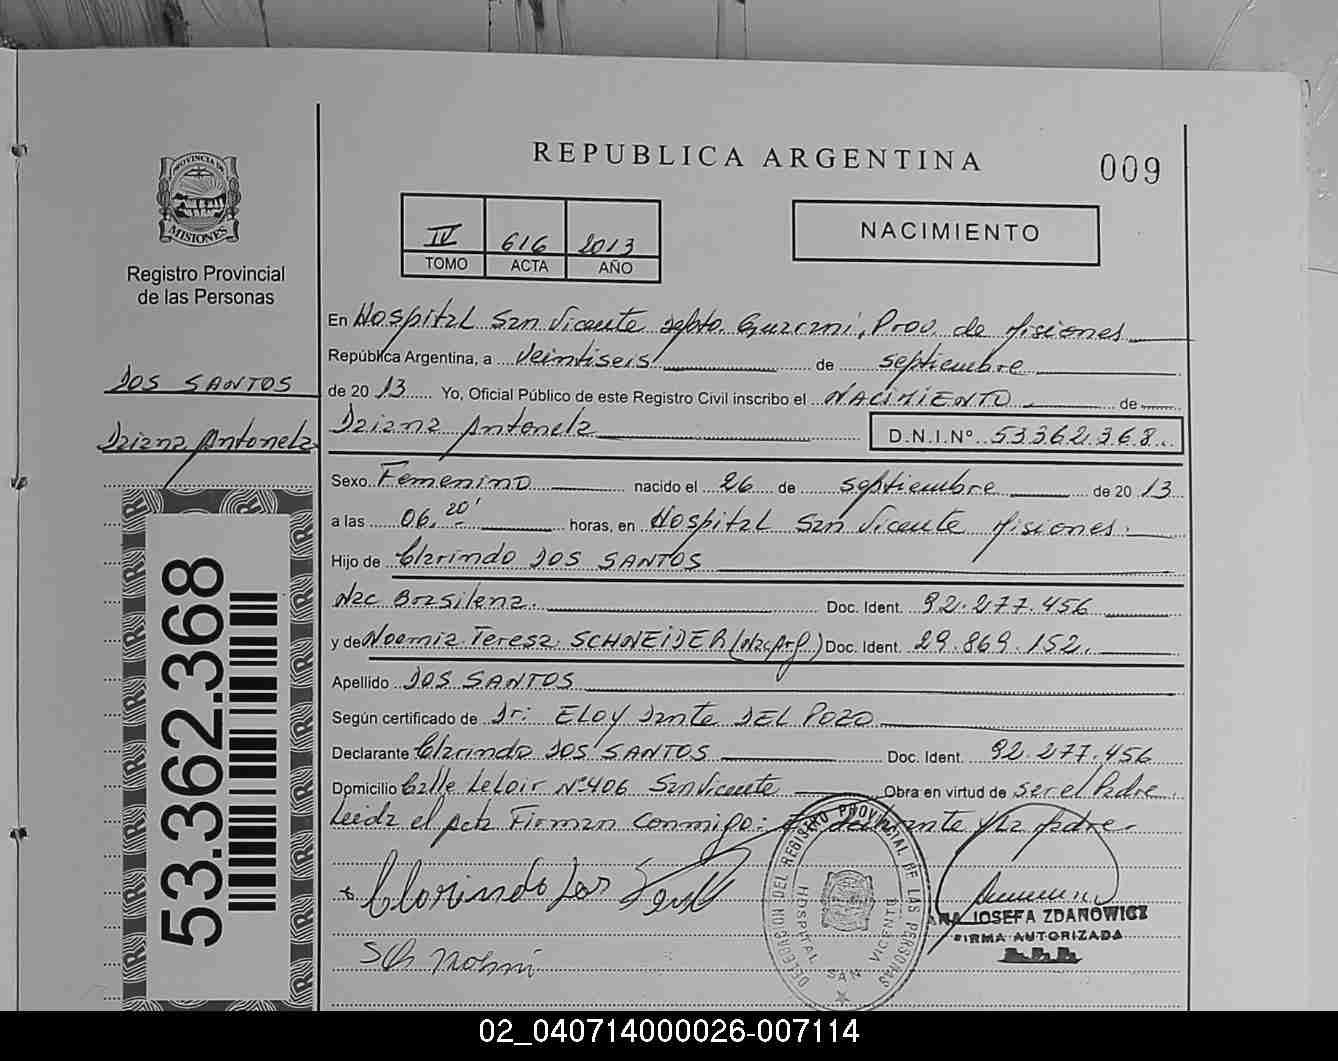 REPUBLICA ARGENTINA
009
PROVINCIA DE
MISIONES
Registro Provincial
de las Personas
IV 616 2013
TOMO ACTA AÑO
NACIMIENTO
En Hospital San Vicente Dpto. Guaraní, Prov. de Misiones
República Argentina, a Veintiseis de septiembre
de 20 13 Yo, Oficial Público de este Registro Civil inscribo el NACIMIENTO de
DOS SANTOS
Daiana Antonela
Daiana Antonela D.N.I.Nº 53362368
Sexo Femenino nacido el 26 de septiembre de 20 13
a las 06.20' horas, en Hospital San Vicente Misiones.
Hijo de Clarindo DOS SANTOS
Nac Brasilena. Doc. Ident. 92.277.456
y de Noemia Teresa SCHNEIDER (Nac Arg.) Doc. Ident. 29.869.152.
Apellido DOS SANTOS
Según certificado de Dr: ELOY Dante DEL POZO
Declarante Clarindo DOS SANTOS Doc. Ident. 92.277.456
Domicilio Calle Leloir Nº406 San Vicente Obra en virtud de ser el Padre
Leida el Acta Firman conmigo: El declarante y la Madre.
53.362.368
Clorindo dos
DELEGACION DEL REGISTRO PROVINCIAL DE LAS PERSONAS
HOSPITAL SAN VICENTE
ANA JOSEFA ZDANOWICZ
FIRMA AUTORIZADA
02_040714000026-007114